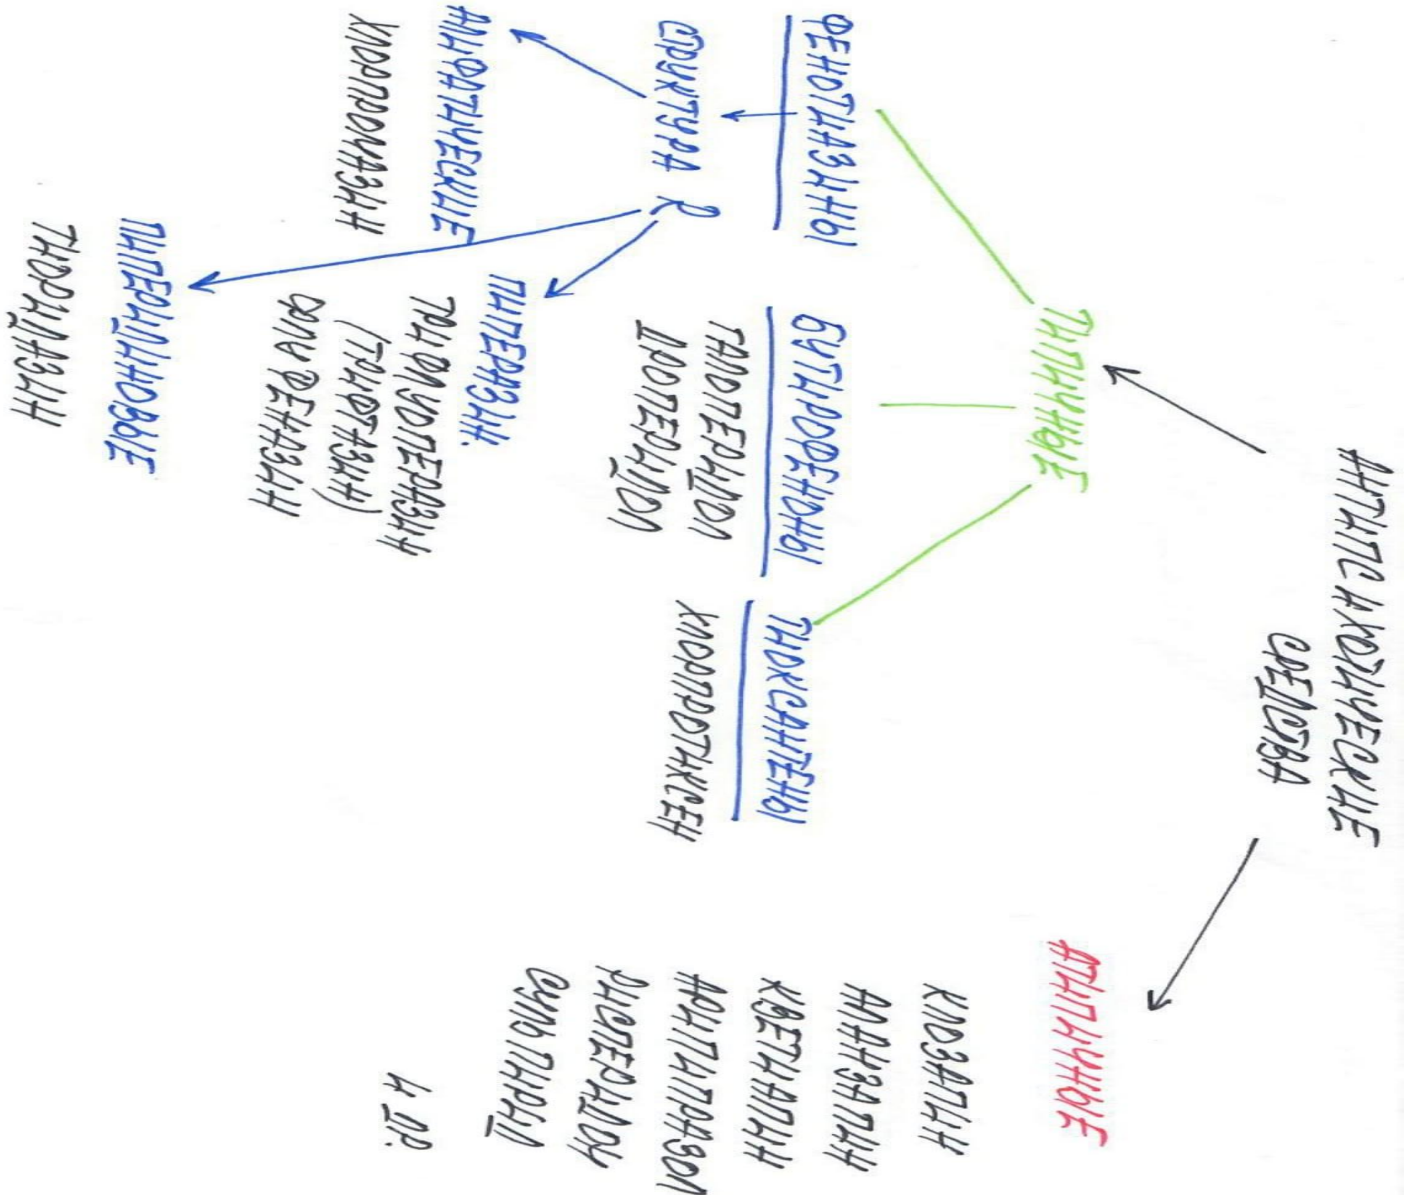 АНТИПСИХОТИЧЕСКИЕ
СРЕДСТВА
ТИПИЧНЫЕ
АТИПИЧНЫЕ
ФЕНОТИАЗИНЫ
СТРУКТУРА R
АЛИФАТИЧЕСКИЕ
ХЛОРПРОМАЗИН
ПИПЕРАЗИН.
ТРИФЛУОПЕРАЗИН
(ТРИФТАЗИН)
ФЛУФЕНАЗИН
ПИПЕРИДИНОВЫЕ
ТИОРИДАЗИН
БУТИРОФЕНОНЫ
ГАЛОПЕРИДОЛ
ДРОПЕРИДОЛ
ТИОКСАНТЕНЫ
ХЛОРПРОТИКСЕН
КЛОЗАПИН
ОЛАНЗАПИН
КВЕТИАПИН
АРИПИПРАЗОЛ
РИСПЕРИДОН
СУЛЬПИРИД
И ДР.